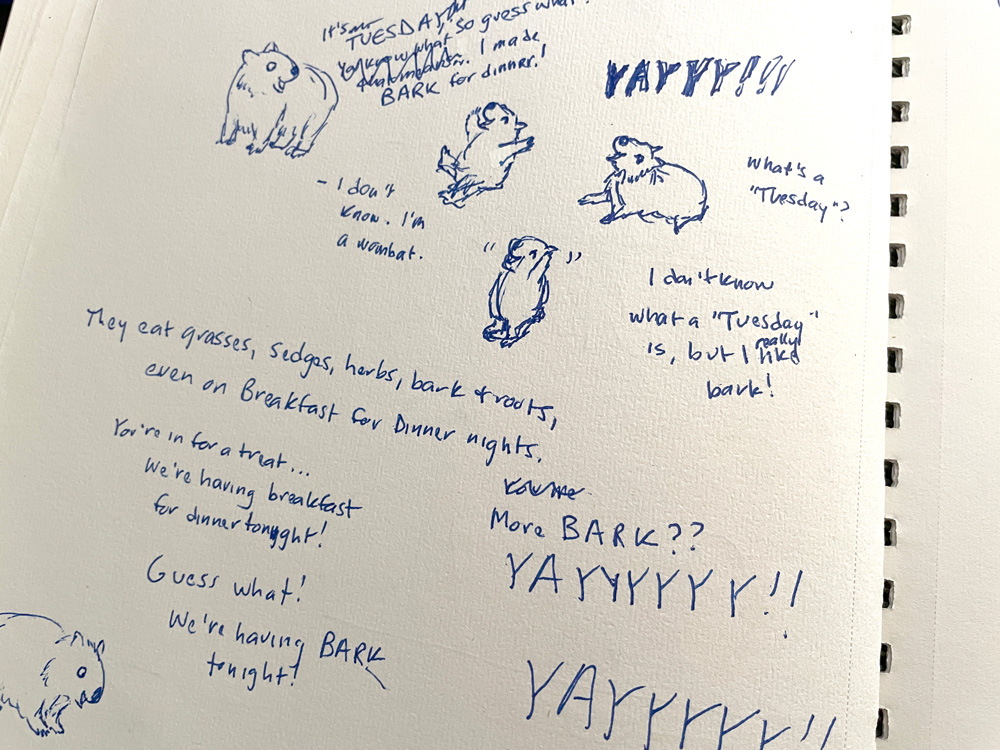 It's
TUESDAY, so guess what?
You know what
I made
BARK for dinner!
YAYYY!!!
what's a
"Tuesday"?
- I don't
know. I'm
a wombat.
I don't know
what a "Tuesday"
is, but I really like
bark!
They eat grasses, sedges, herbs, bark & roots,
even on Breakfast for Dinner nights.
You're in for a treat...
We're having breakfast
for dinner tonight!
More BARK??
YAYYYYYY!!
Guess what!
We're having BARK
tonight!
YAYYYYYY!!